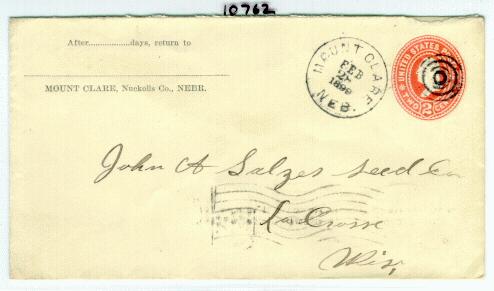 10762
After..................days, return to
MOUNT CLARE, Nuckolls Co., NEBR.
MOUNT CLARE
FEB
1899
NEB.
UNITED STATES
TWO 2 CENTS
John A Salzes Seed Co
La Crosse
Wis,